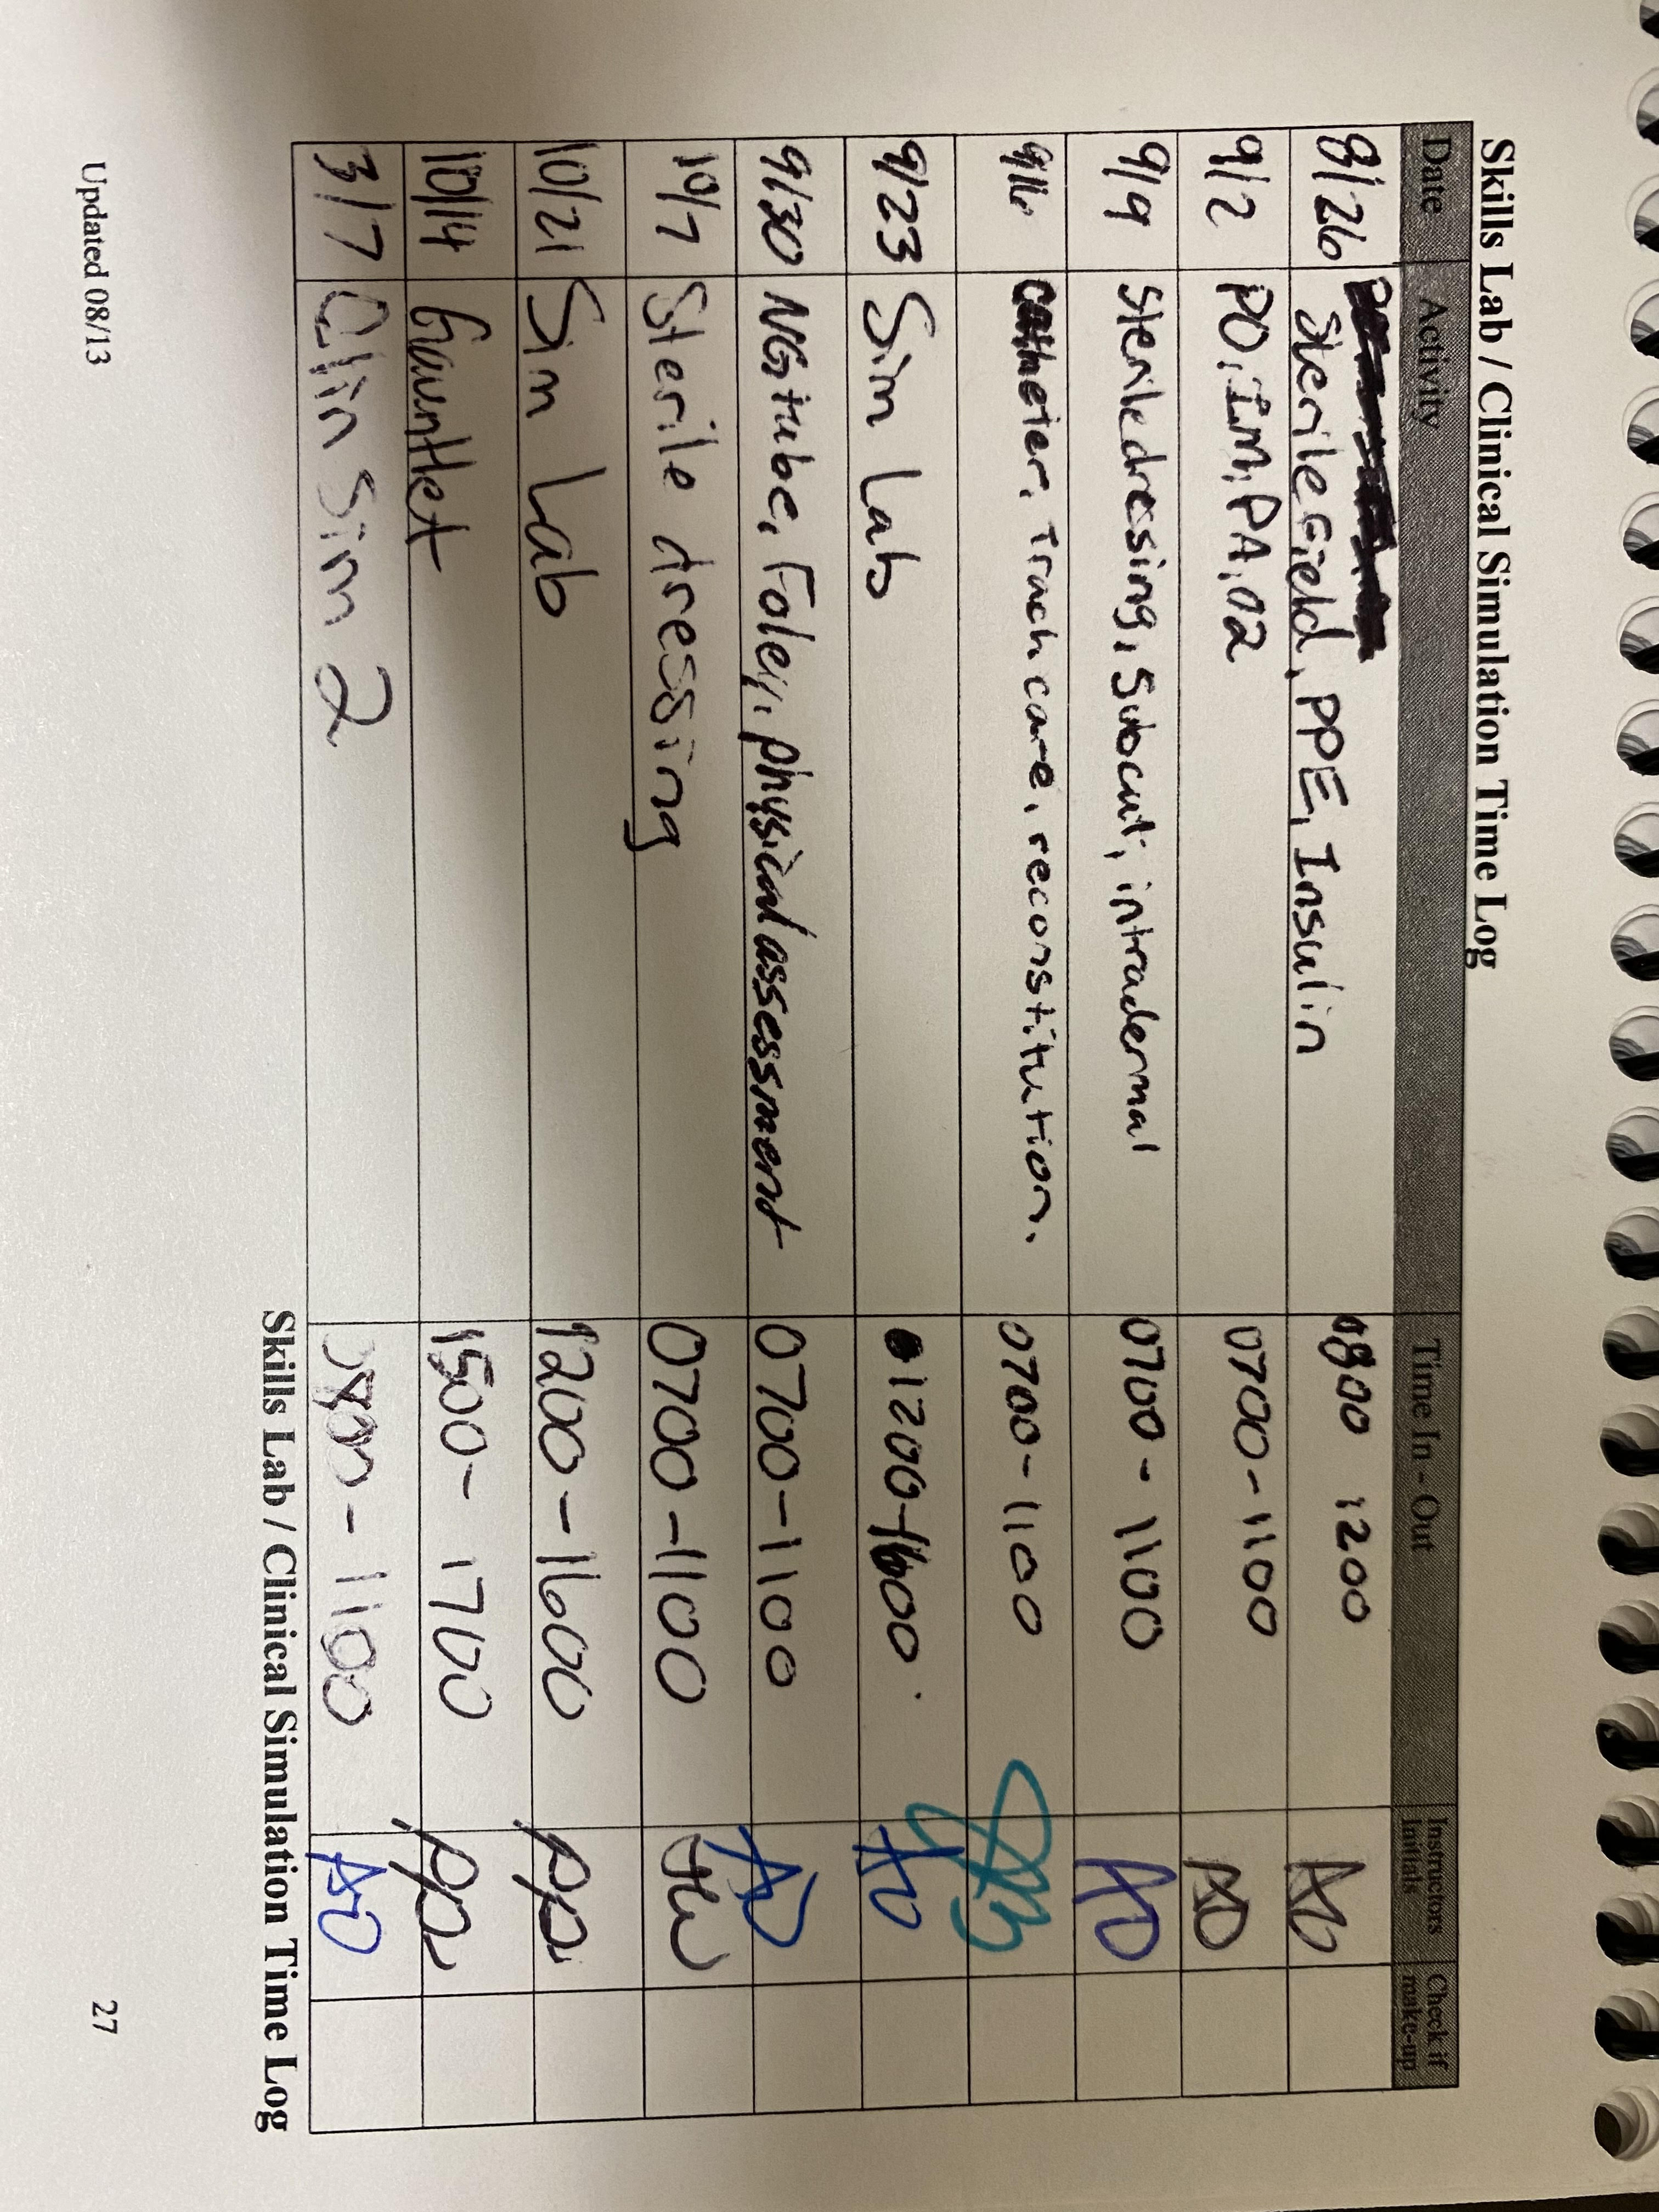 Skills Lab / Clinical Simulation Time Log
Date Activity Time In - Out Instructors Initials Check if make-up
8/26 Sterile Field, PPE, Insulin 0800 1200
9/2 PO, IM, PA, O2 0700-1100 AD
9/9 Sterile dressing, Subcut, intradermal 0700 - 1100 AD
9/16 Catheter, Trach care, reconstitution. 0700-1100
9/23 Sim Lab 1200-1600 AD
9/30 NG tube, Foley, physical assessment 0700-1100 AD
10/7 Sterile dressing 0700-1100
10/21 Sim Lab 1200-1600
10/14 Gaunttet 1500- 1700
3/7 Clin Sim 2 - 1100
Skills Lab / Clinical Simulation Time Log
Updated 08/13
27